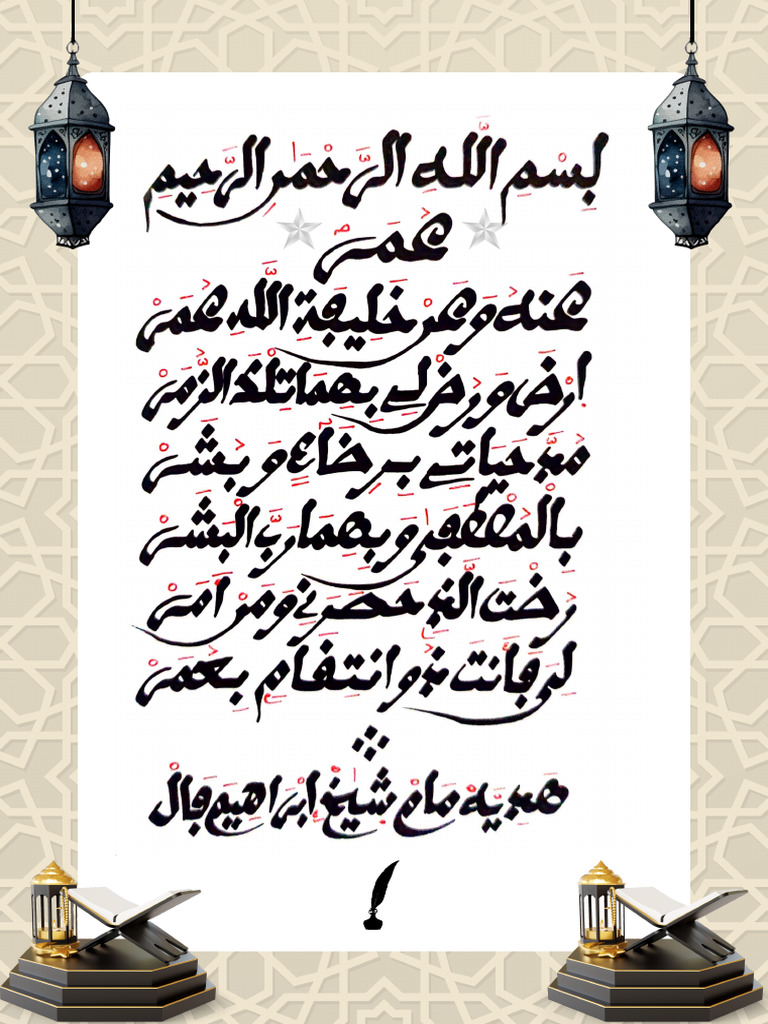 بِسْمِ اللَّهِ الرَّحْمَٰنِ الرَّحِيمِ
عُمَرْ
عَنْهُ وَعَنْ خَلِيفَةِ اللَّهِ عُمَرْ
اِرْضَ وَرُضْ لِي بِهِمَا الزُّمَرْ
مُدَّ حَيَاتِي بِرِضَاءٍ وَبَشَرْ
بِالْمُصْطَفَى وَبِهِمَا رَبَّ الْبَشَرْ
رُضْتَ الَّذِي حَصَرَنِي وَمَنْ أَمَرْ
لِي فَأَنْتَ ذُو انْتِقَامٍ بِعُمَرْ
هَدِيَّةْ مَامْ شَيْخْ إِبْرَاهِيمْ فَالْ